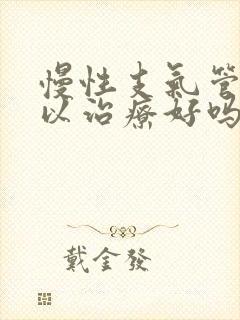 慢性支氣管
以治療好吗
戴金發